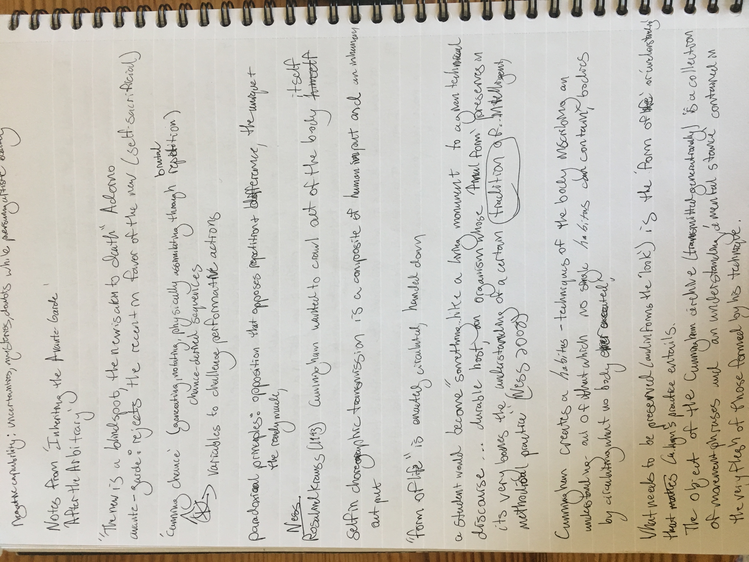 negative capability: uncertainties, mysteries, doubts while
Notes from 'Inheriting the Avante-Garde'
'After the Arbitrary'
"The new is a blindspot, the new is akin to death" Adorno
avante-guide: rejects the recent in favor of the new (self-sacrificial)
'Cunning chance' (generating, notating, physically through brutal repetition)
chance-derived sequences
variables to challenge performative actions
paradoxical principles: opposition that opposes repetition + difference, the unique +
the readymade,
Ness
Rosalind Krauss (1993) Cunningham wanted to crawl out of the body himself itself
self in choreographic transmission is a composite of human input and an inhuman
output
"form of life" is enacted, circulated, handed down
a student would become "something like a living monument to a given technical
discourse ... durable host, an organism whose 'final form' preserves in
its very bones the understanding of a certain tradition of... intelligent,
methodical practice" (Ness 2008)
Cunningham creates a habitus - techniques of the body inscribing an
understanding - out of that which no single habitus can contain, bodies
by circulating what no body executed,
What needs to be preserved (and informs the 'look') is the form of life or understanding
that practice entails.
The object of the Cunningham archive (transmitted generationally) is a collection
of movement phrases and an understanding, a mental stance contained in
the very flesh of those formed by his technique.